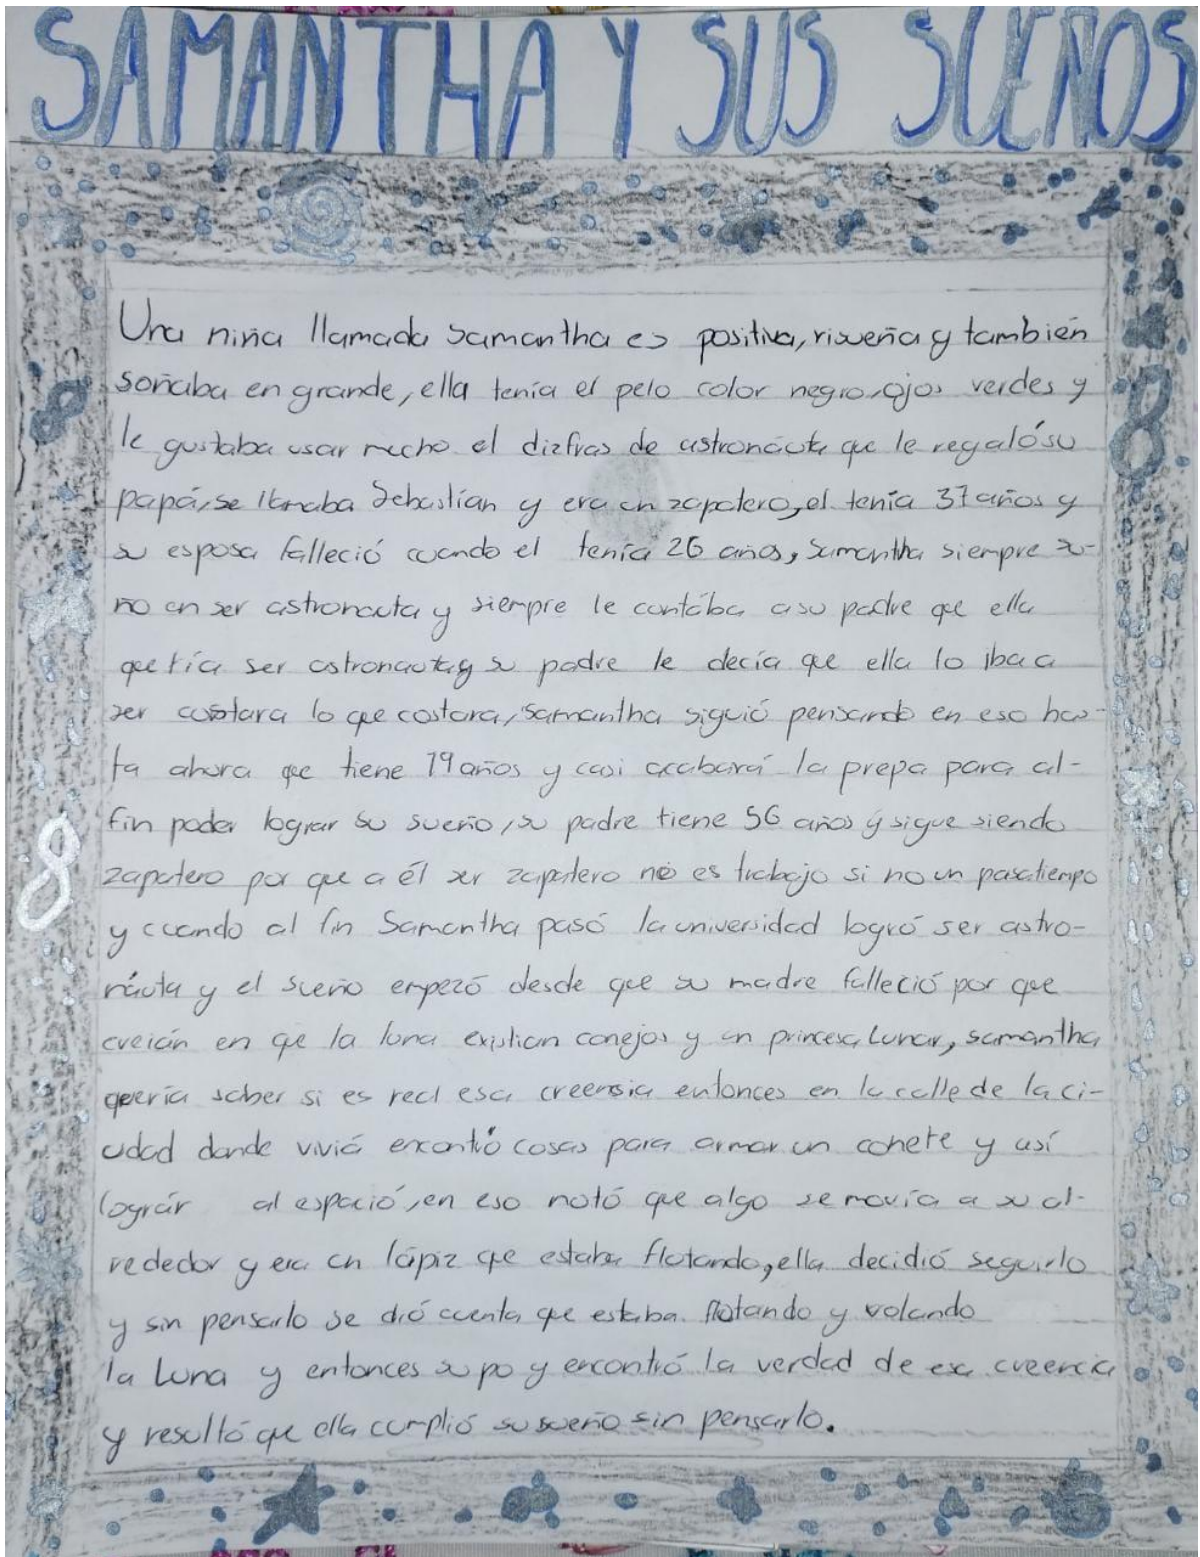 SAMANTHA Y SUS SUEÑOS
Una niña llamada Samantha es positiva, risueña y también
soñaba en grande, ella tenía el pelo color negro, ojos verdes y
le gustaba usar mucho el dizfras de astronáuta que le regaló su
papá, se llamaba Sebastían y era un zapatero, el tenía 37 años y
su esposa falleció cuando el tenía 26 años, Samantha siempre so-
ño en ser astronauta y siempre le contába a su padre que ella
quería ser astronauta y su padre le decía que ella lo iba a
ser costara lo que costara, Samantha siguió pensando en eso has-
ta ahora que tiene 19 años y casi acabará la prepa para al-
fin poder lograr su sueño, su padre tiene 56 años y sigue siendo
zapatero por que a él ser zapatero no es trabajo si no un pasatiempo
y cuando al fin Samantha pasó la universidad logró ser astro-
náuta y el sueño empezó desde que su madre falleció por que
creián en que la luna existian conejos y un princesa Lunar, samantha
quería saber si es real esa creensia entonces en la calle de la ci-
udad donde viviá encontró cosas para armar un cohete y así
lográr al espació, en eso notó que algo se movía a su al-
rededor y era un lápiz que estaba flotando, ella decidió seguirlo
y sin pensarlo se dió cuenta que estaba flotando y volando
la Luna y entonces supo y encontró la verdad de esa creencia
y resultó que ella cumplió su sueño sin pensarlo.